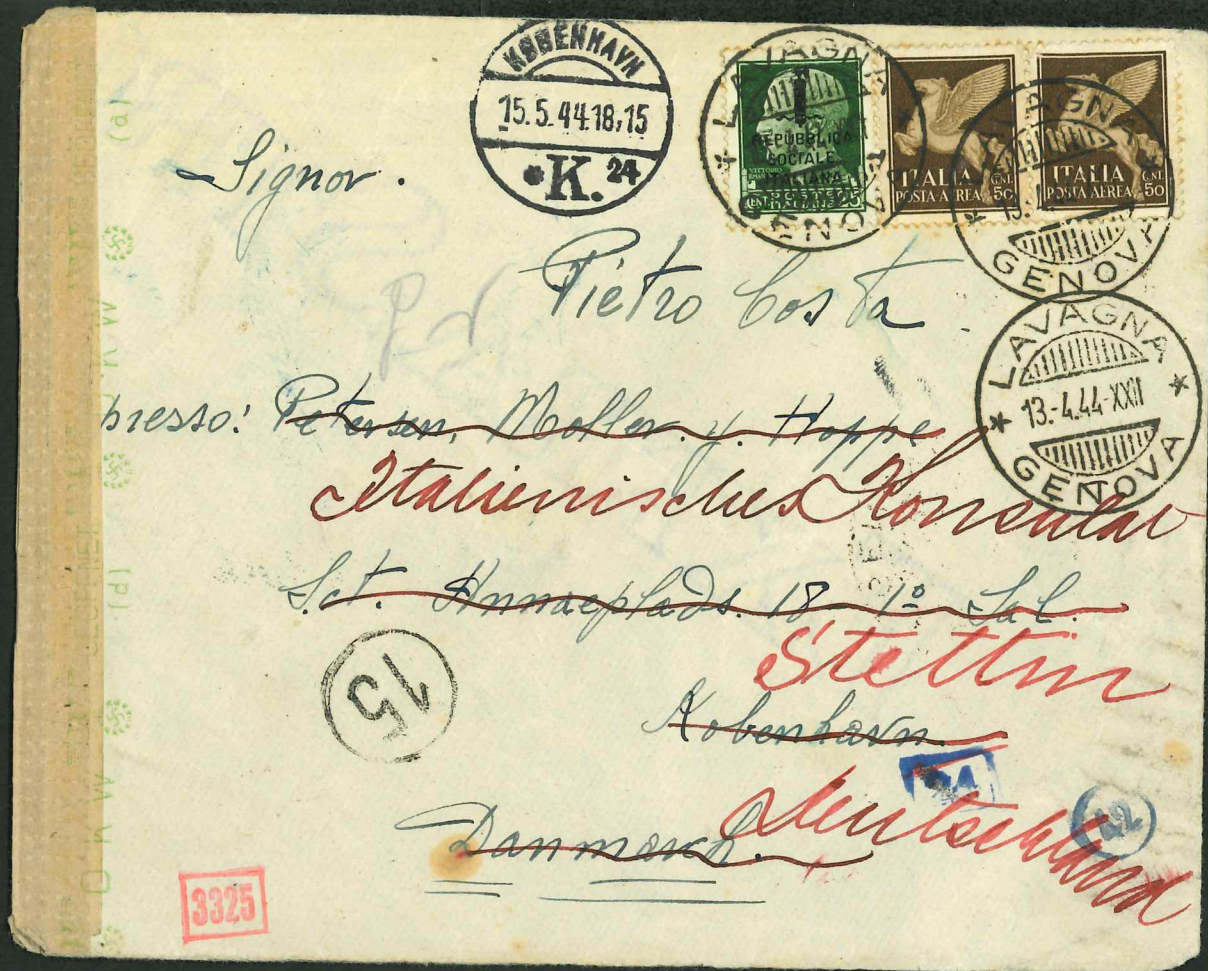 KØBENHAVN
15.5.44.18,15
*K. 24
LAVAGNA
GENOVA
REPUBBLICA
SOCIALE
ITALIANA
CENT. 25
ITALIA
POSTA AEREA
CNT. 50
ITALIA
POSTA AEREA
CNT. 50
LAVAGNA
GENOVA
LAVAGNA
13.-4.44-XXII
GENOVA
Signor.
Pietro Costa.
presso: Petersen, Moller. y. Hoppe
Italienisches Konsulat
Sct. Annaeplads. 18 - 1º Sal.
Stettin
Kobenhavn.
Deutschland
Danmark.
15
3325
(a)
(d)